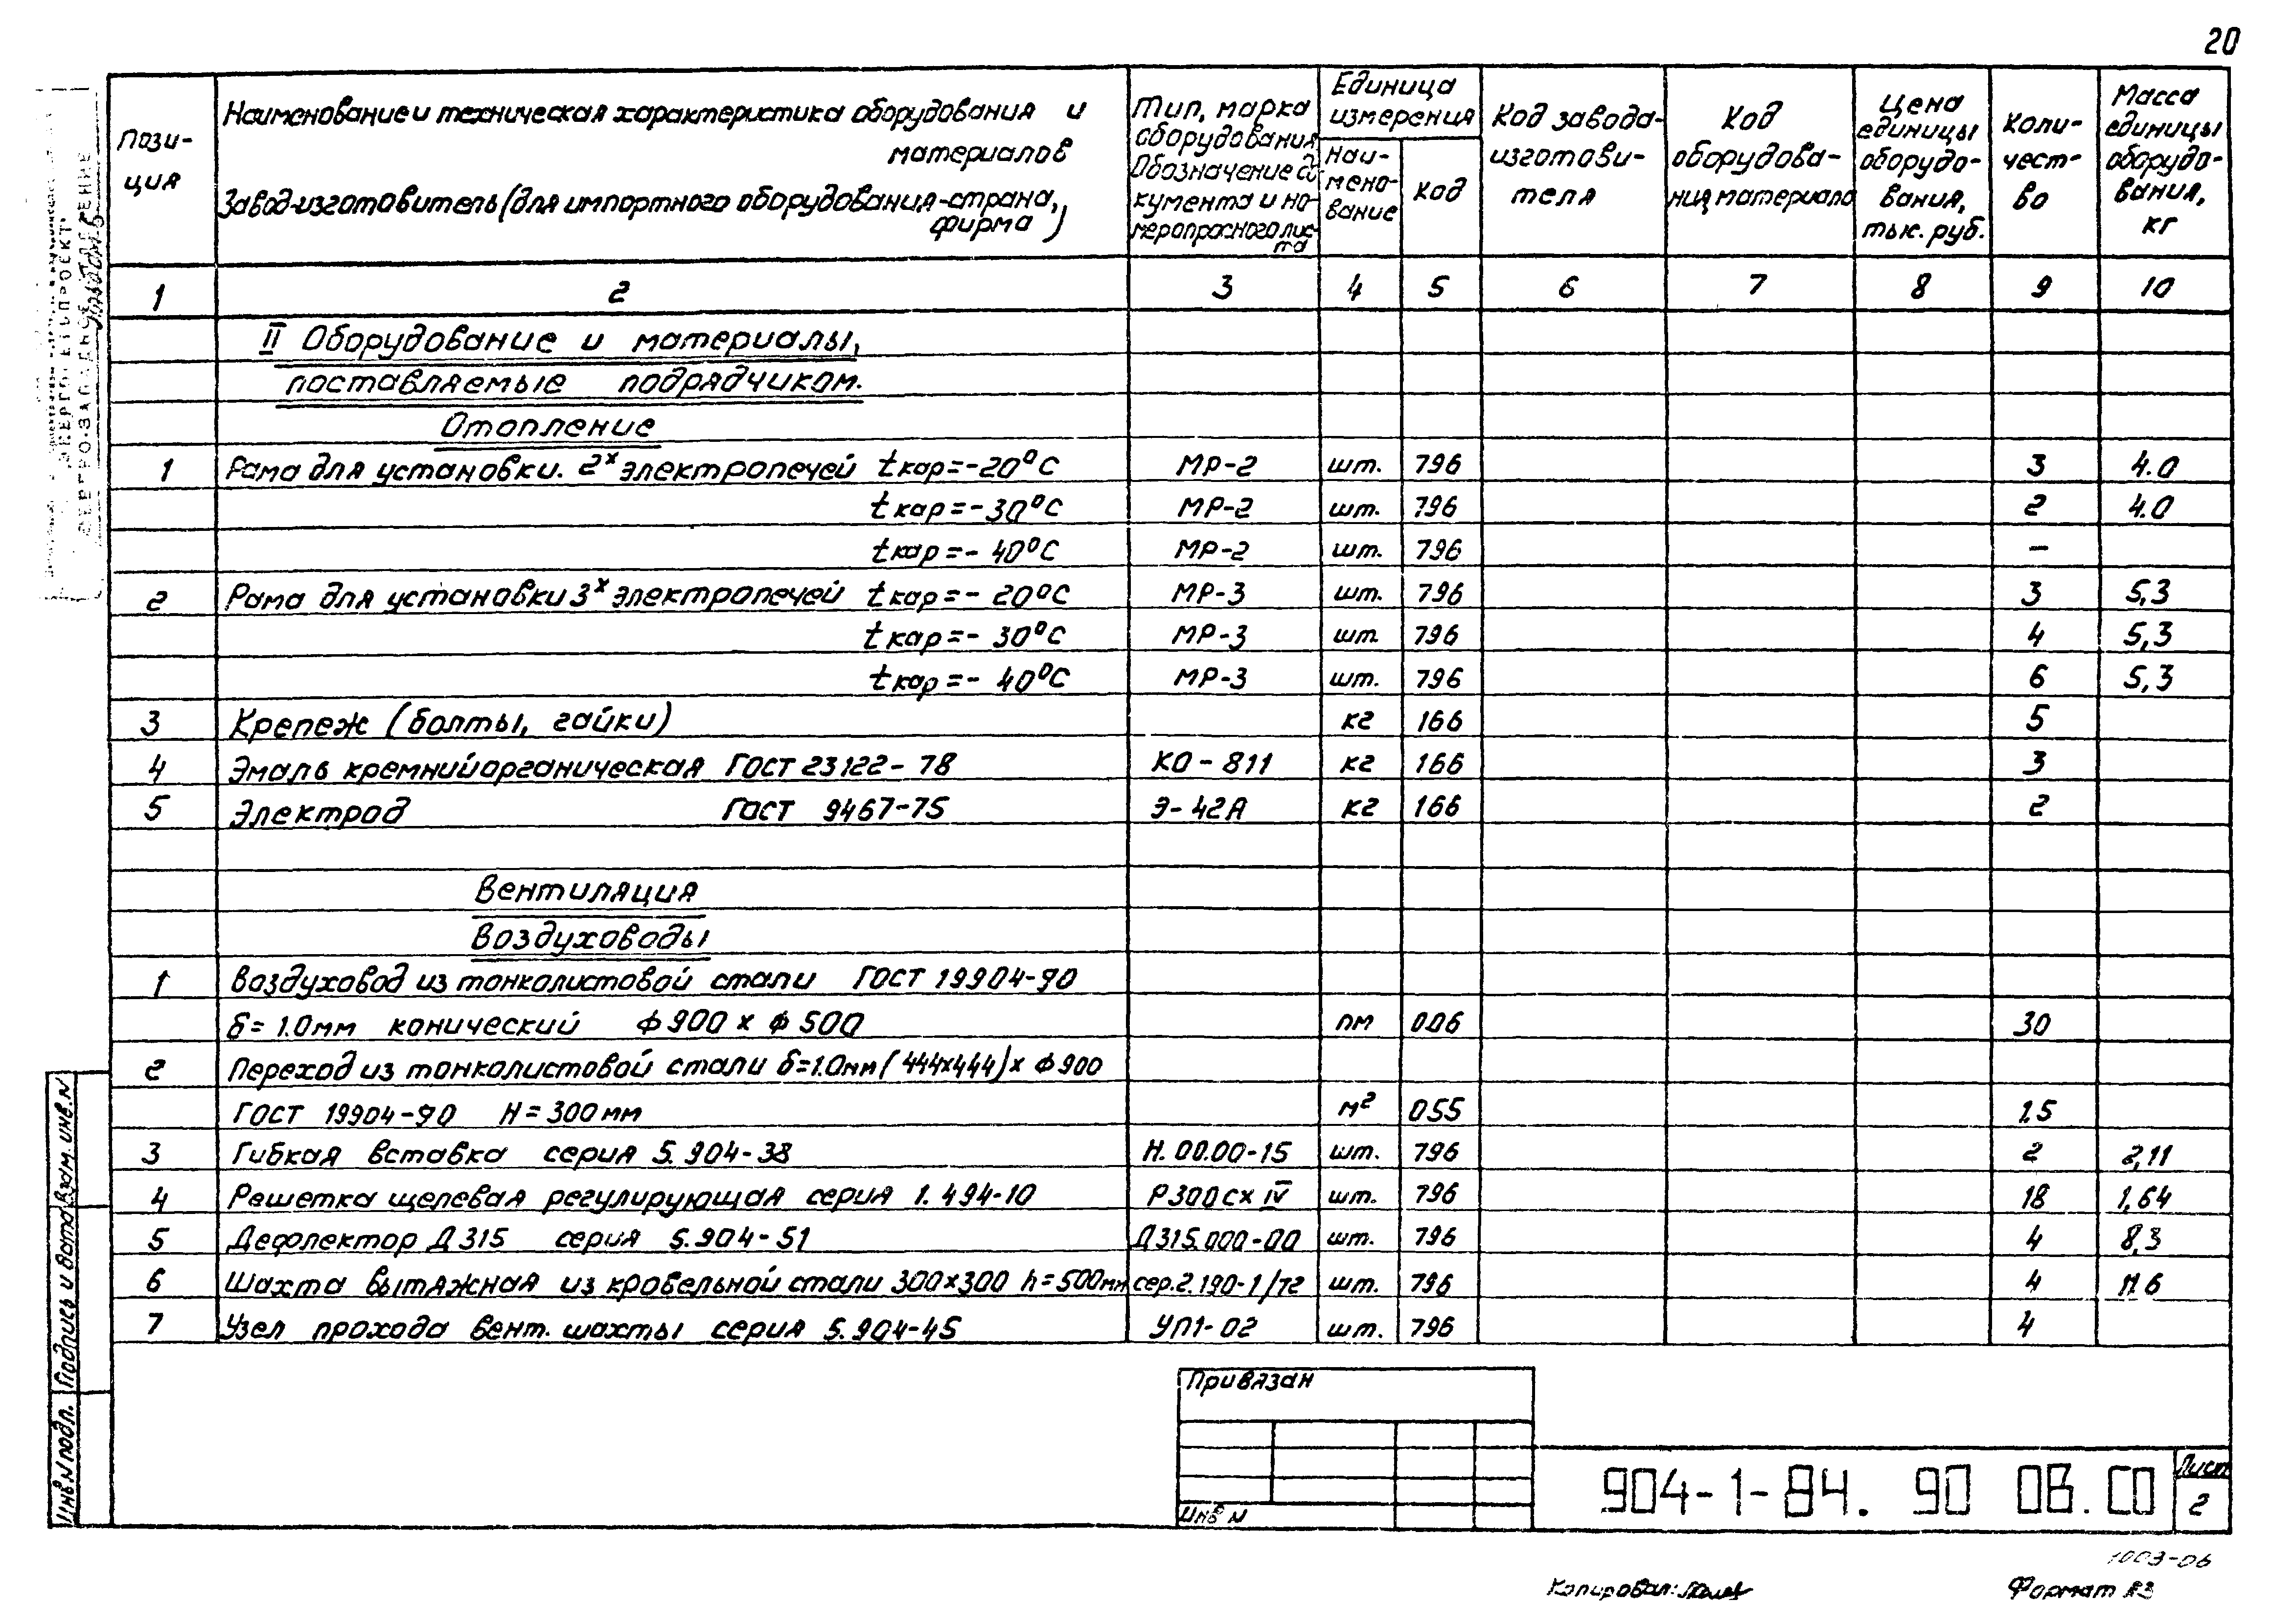 20
Пози-
ция
Наименование и техническая характеристика оборудования и
материалов
Завод-изготовитель (для импортного оборудования-страна,
фирма)
Тип, марка
оборудования
Обозначение до
кумента и но-
мер опросного лис-
та
Единица
измерения
Наи-
мено-
вание
Код
Код завода-
изготови-
теля
Код
оборудова-
ния, материала
Цена
единицы
оборудо-
вания,
тыс. руб.
Коли-
чест-
во
Масса
единицы
оборудо-
вания,
кг
1 2 3 4 5 6 7 8 9 10
II Оборудование и материалы,
поставляемые подрядчиком.
Отопление
1 Рама для установки. 2х электропечей tкар=-20°С МР-2 шт. 796 3 4.0
tкар=-30°С МР-2 шт. 796 2 4.0
tкар=-40°С МР-2 шт. 796 –
2 Рама для установки 3х электропечей tкар=-20°С МР-3 шт. 796 3 5,3
tкар=-30°С МР-3 шт 796 4 5,3
tкар=-40°С МР-3 шт. 796 6 5,3
3 Крепеж (болты, гайки) кг 166 5
4 Эмаль кремнийорганическая ГОСТ 23122-78 КО-811 кг 166 3
5 Электрод ГОСТ 9467-75 Э-42А кг 166 2
Вентиляция
Воздуховоды
1 Воздуховод из тонколистовой стали ГОСТ 19904-90
δ=1.0мм конический ф900 х ф500 пм 006 30
2 Переход из тонколистовой стали δ=1.0мм (444х444)х ф900
ГОСТ 19904-90 Н=300мм м² 055 1.5
3 Гибкая вставка серия 5.904-38 Н.00.00-15 шт. 796 2 2,11
4 Решетка щелевая регулирующая серия 1.494-10 Р300Сх IV шт. 796 18 1,64
5 Дефлектор Д315 серия 5.904-51 Д315.000-00 шт. 796 4 8,3
6 Шахта вытяжная из кровельной стали 300х300 h=500мм сер.2.190-1/72 шт. 796 4 11.6
7 Узел прохода вент. шахты серия 5.904-45 УП1-02 шт. 796 4
Привязан
Инв N
904-1-84. 90 ОВ.СО
Лист
2
Инв.N подл.
Подпись и дата
Взам. инв.N
1003-06
Копировал:
Формат А3